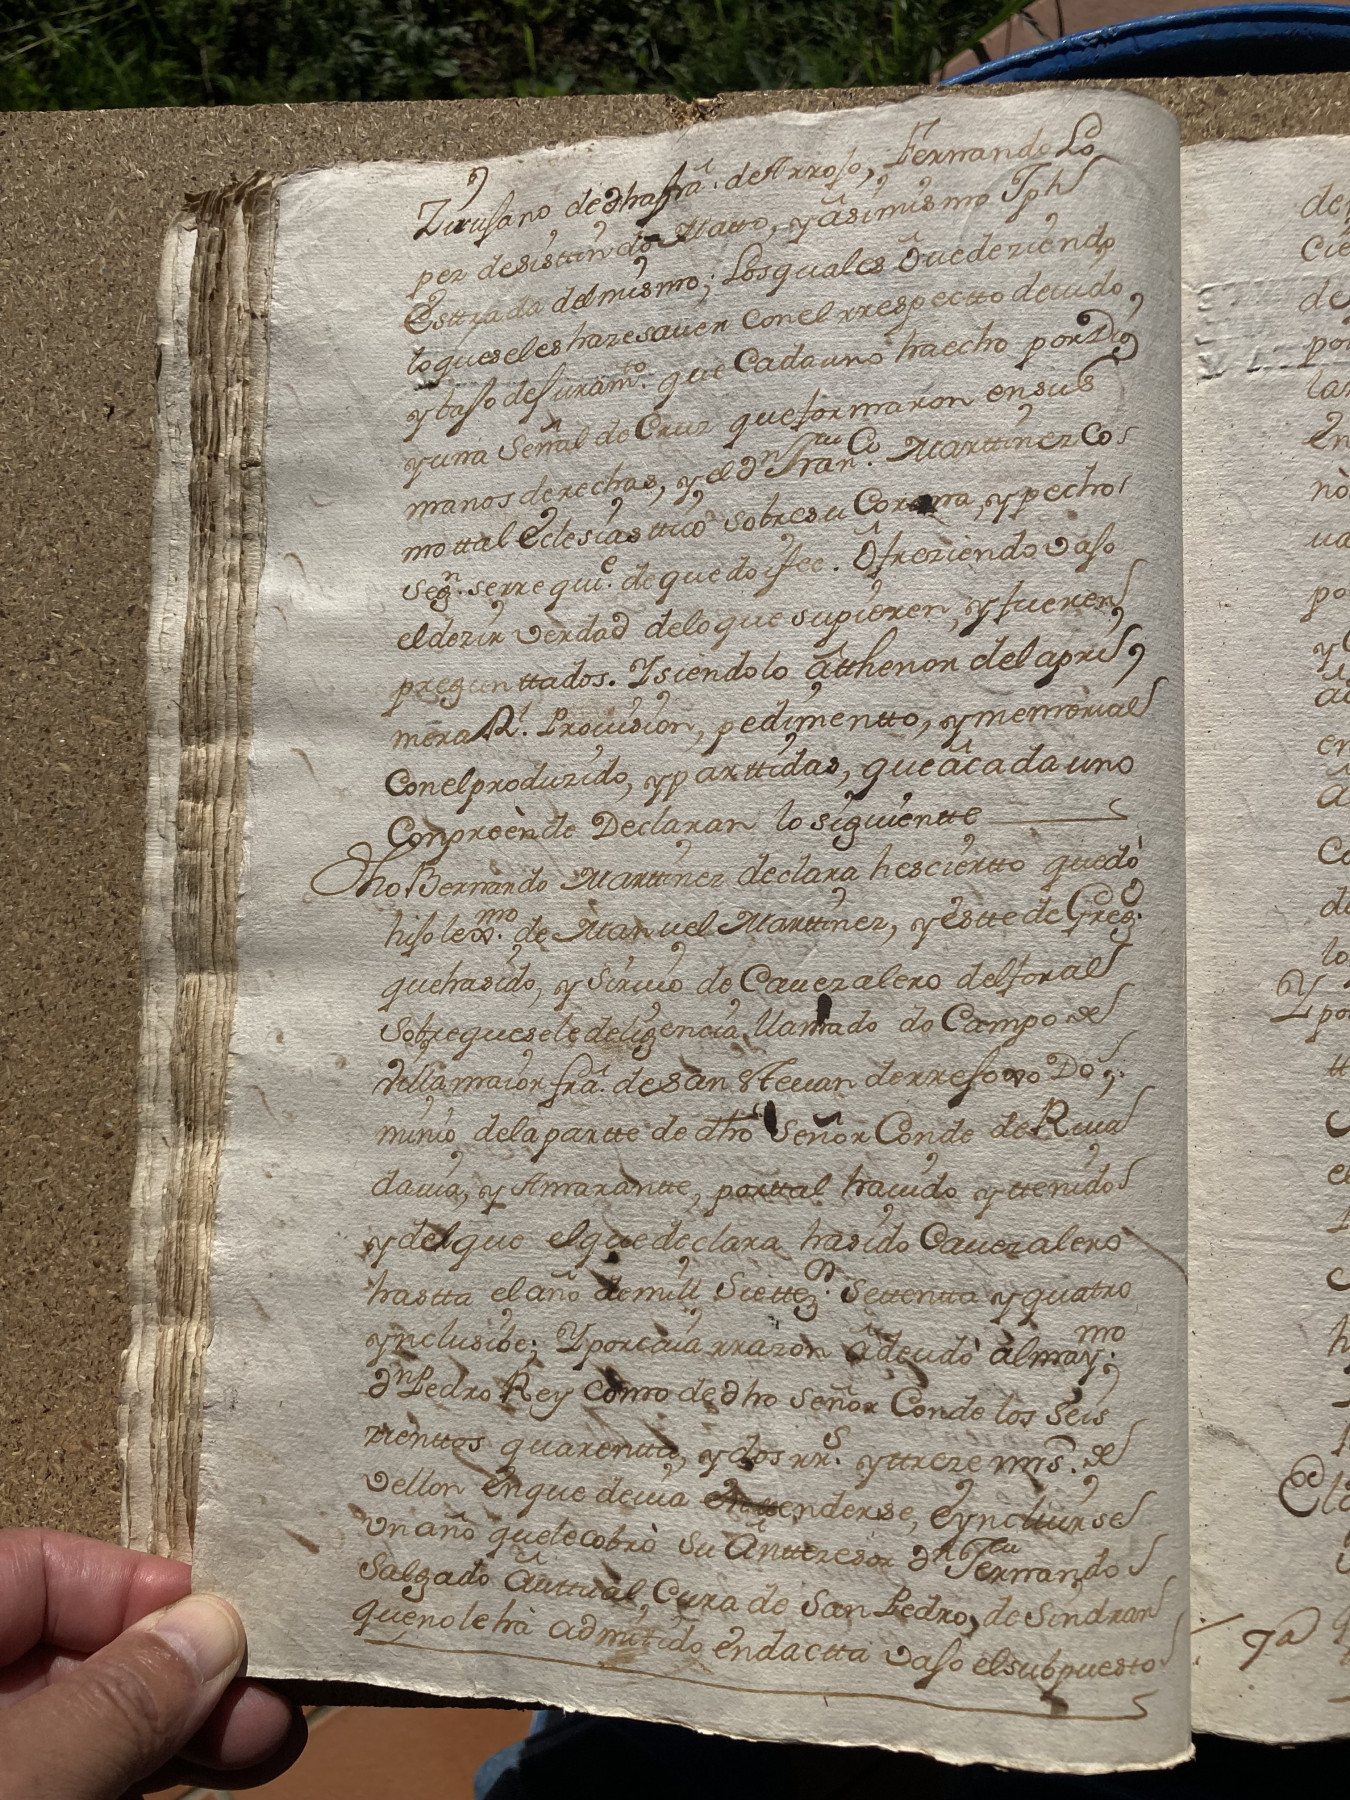 Zirujano de dha frâ. de Arrojo, Fernando Lo
pez desisttin do Matto, y âsimismo Jph
Esttrada del mismo; Los quales Ôuedeziendo
lo que se les haze sauer con el rrespectto deuido,
y vajo de juramto. que Cada uno ha echo por Dios
y una Señal de Cruz que formaron en sus
manos derechas, y el dn Franco. Marttinez Co
mo ttal Eclesiasttico sobre su Corona, y pecho
segn. se rrequie. de que doi fee. Ôfreziendo vajo
el dezir verdad de lo que supieren, y fueren
pregunttados. Y siendolo âtthenor de la pri
mera Rl. Prouision, pedimentto, y memorial
Con el produzido, y parttidas, que âcada uno
Conpreènde Declaran lo siguientte
Dho Bernàrdo Marttinez declara hes ciertto quedò
hijo lexmo. de Manuel Marttinez, y êstte de Grego.
que ha sido, y siruio de Cauezalero del foral
sobre que se le deligencia llamado do Campo de
Villamaior frâ. de San Steuan de rrejono Do
minio de la partte de dho Señor Conde de Riua
dauia, y Amarantte, por ttal hauido y ttenido
y del que el que declara ha sido Cauezalero
hastta el año de mill Siettezos. Settentta y quatro
ynclusibe; Y por cuia rrazon âdeudò âl maymo.
dn Pedro Rey como de dho señor Conde los seis
zienttos quarentta, y dos rrs. y ttreze mrs. de
vellon en que deuia enttenderse, e yncluirse
un año que le cobrò su Antteresor dn Fernando
Salgado âuttual Cura de San Pedro, de Sindran
que no le hà admitido en dactta vajo el subpuesto